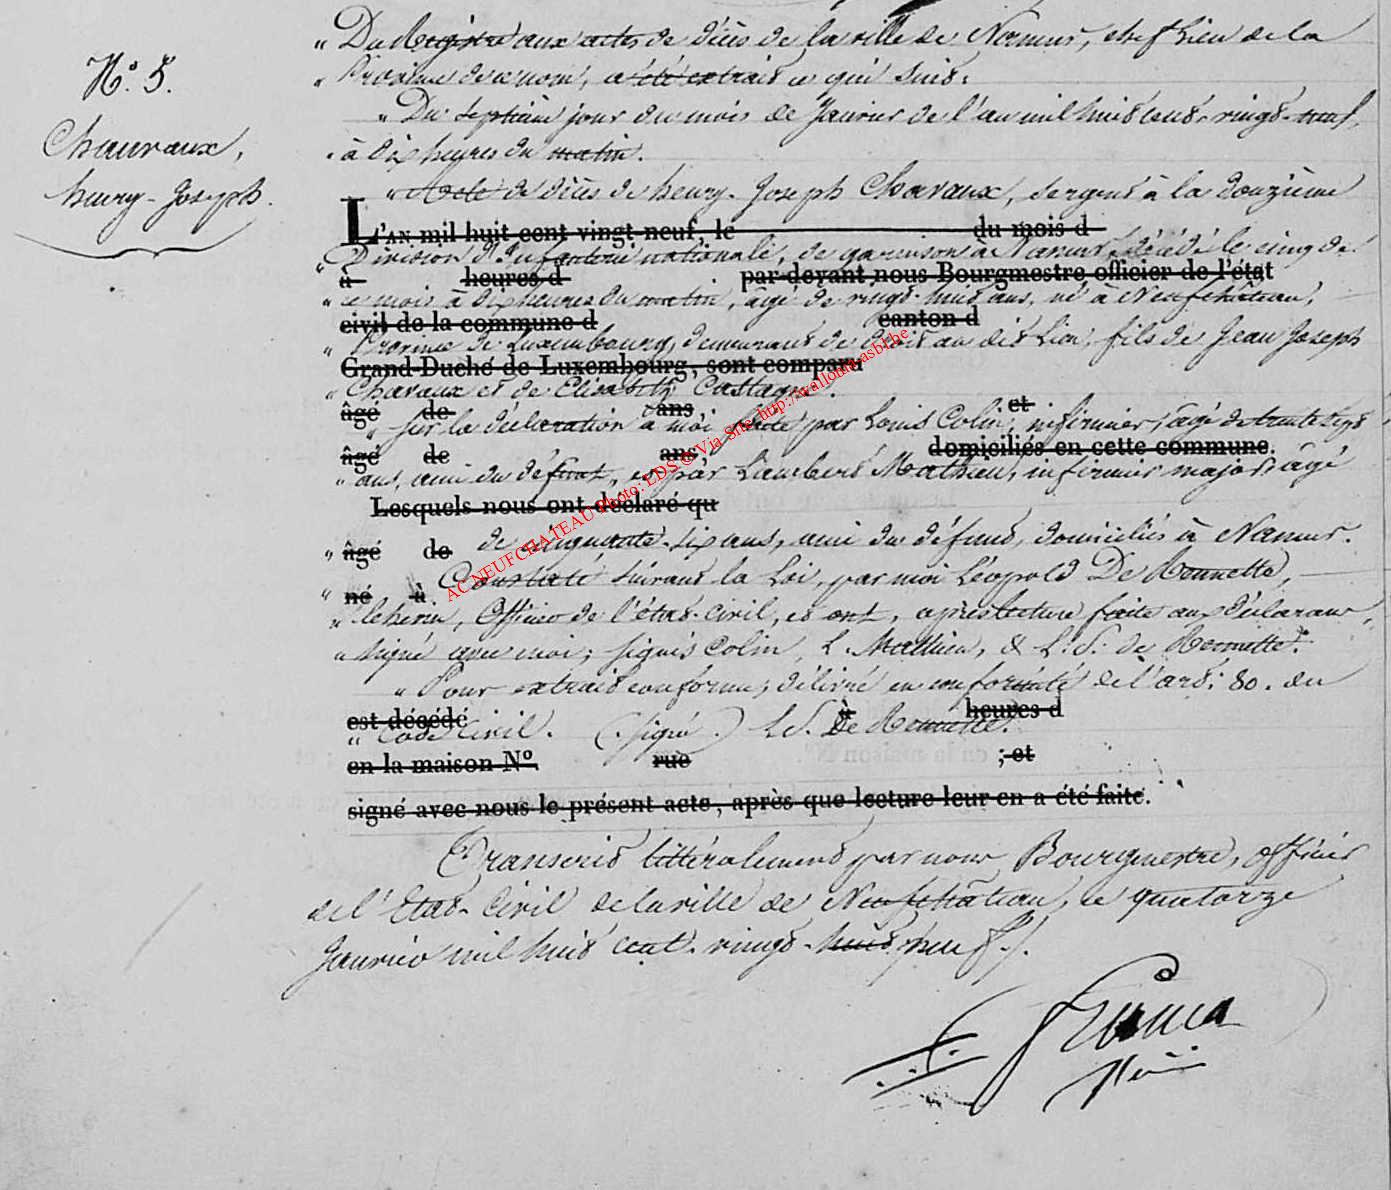 N.° 5.
Chauvaux,
henry-Joseph.
" Du Registre aux actes de décès de la ville de Namur, chef Lieu de la
" Province de ce nom, a été extrait ce qui suit.
" Du septième jour du mois de Janvier de l'an mil huit cent vingt-neuf,
" à dix heures du matin.
" Acte de décès de henry-Joseph Chavaux, sergent à la douzième
L'AN mil huit cent vingt-neuf, le du mois d
" Division d'Infanterie nationale, de garnison à Namur, décédé le cinq de
à heures d par-devant nous Bourgmestre officier de l'état
" ce mois à dix heures du matin, âgé de vingt-huit ans, né à Neufchâteau,
civil de la commune d canton d
" Province de Luxembourg, demeurant de droit au dit Lieu, fils de Jean Joseph
Grand-Duché de Luxembourg, sont comparu
" Chavaux et de Elisabeth Castagne.
âgé de ans, et
" Sur la déclaration à moi faite par Louis Colin, infirmier, âgé de trente sept
âgé de ans, domiciliés en cette commune.
" ans, ami du défunt, et par Lambert Mathieu, infirmier major, âgé
Lesquels nous ont déclaré qu
" de cinquante-six ans, ami du défunt, domiciliés à Namur.
âgé de
" Constaté suivant la Loi, par moi Léopold De Hennette,
né à
" Echevin, Officier de l'état-civil, et ont, après lecture faite aux déclarans,
" signé avec moi; signés Colin, L. Mathieu, & L.S. de Hennette.
" Pour extrait conforme, délivré en conformité de l'art: 80. du
est décédé à heures d
" Code Civil. (signé) L.S. De Hennette.
en la maison N° rue ; et
signé avec nous le présent acte, après que lecture leur en a été faite.
Transcrit littéralement par nous Bourgmestre, officier
de l'Etat-Civil de la ville de Neufchâteau, le quatorze
Janvier mil huit cent-vingt-huit neuf./.
AC NEUFCHATEAU Photo: EDS © Via Site: http://wallonia-asbl.be